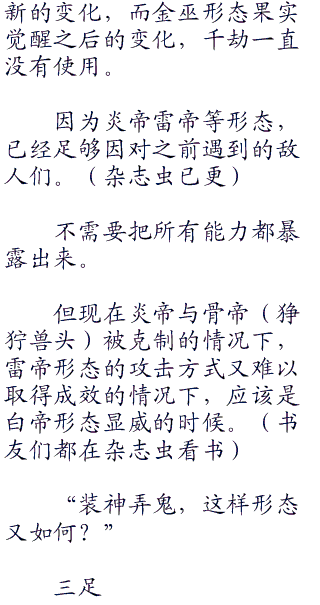 新的变化，而金巫形态果实
觉醒之后的变化，千劫一直
没有使用。
因为炎帝雷帝等形态，
已经足够因对之前遇到的敌
人们。（杂志虫已更）
不需要把所有能力都暴
露出来。
但现在炎帝与骨帝（狰
狞兽头）被克制的情况下，
雷帝形态的攻击方式又难以
取得成效的情况下，应该是
白帝形态显威的时候。（书
友们都在杂志虫看书）
“装神弄鬼，这样形态
又如何？”
三足